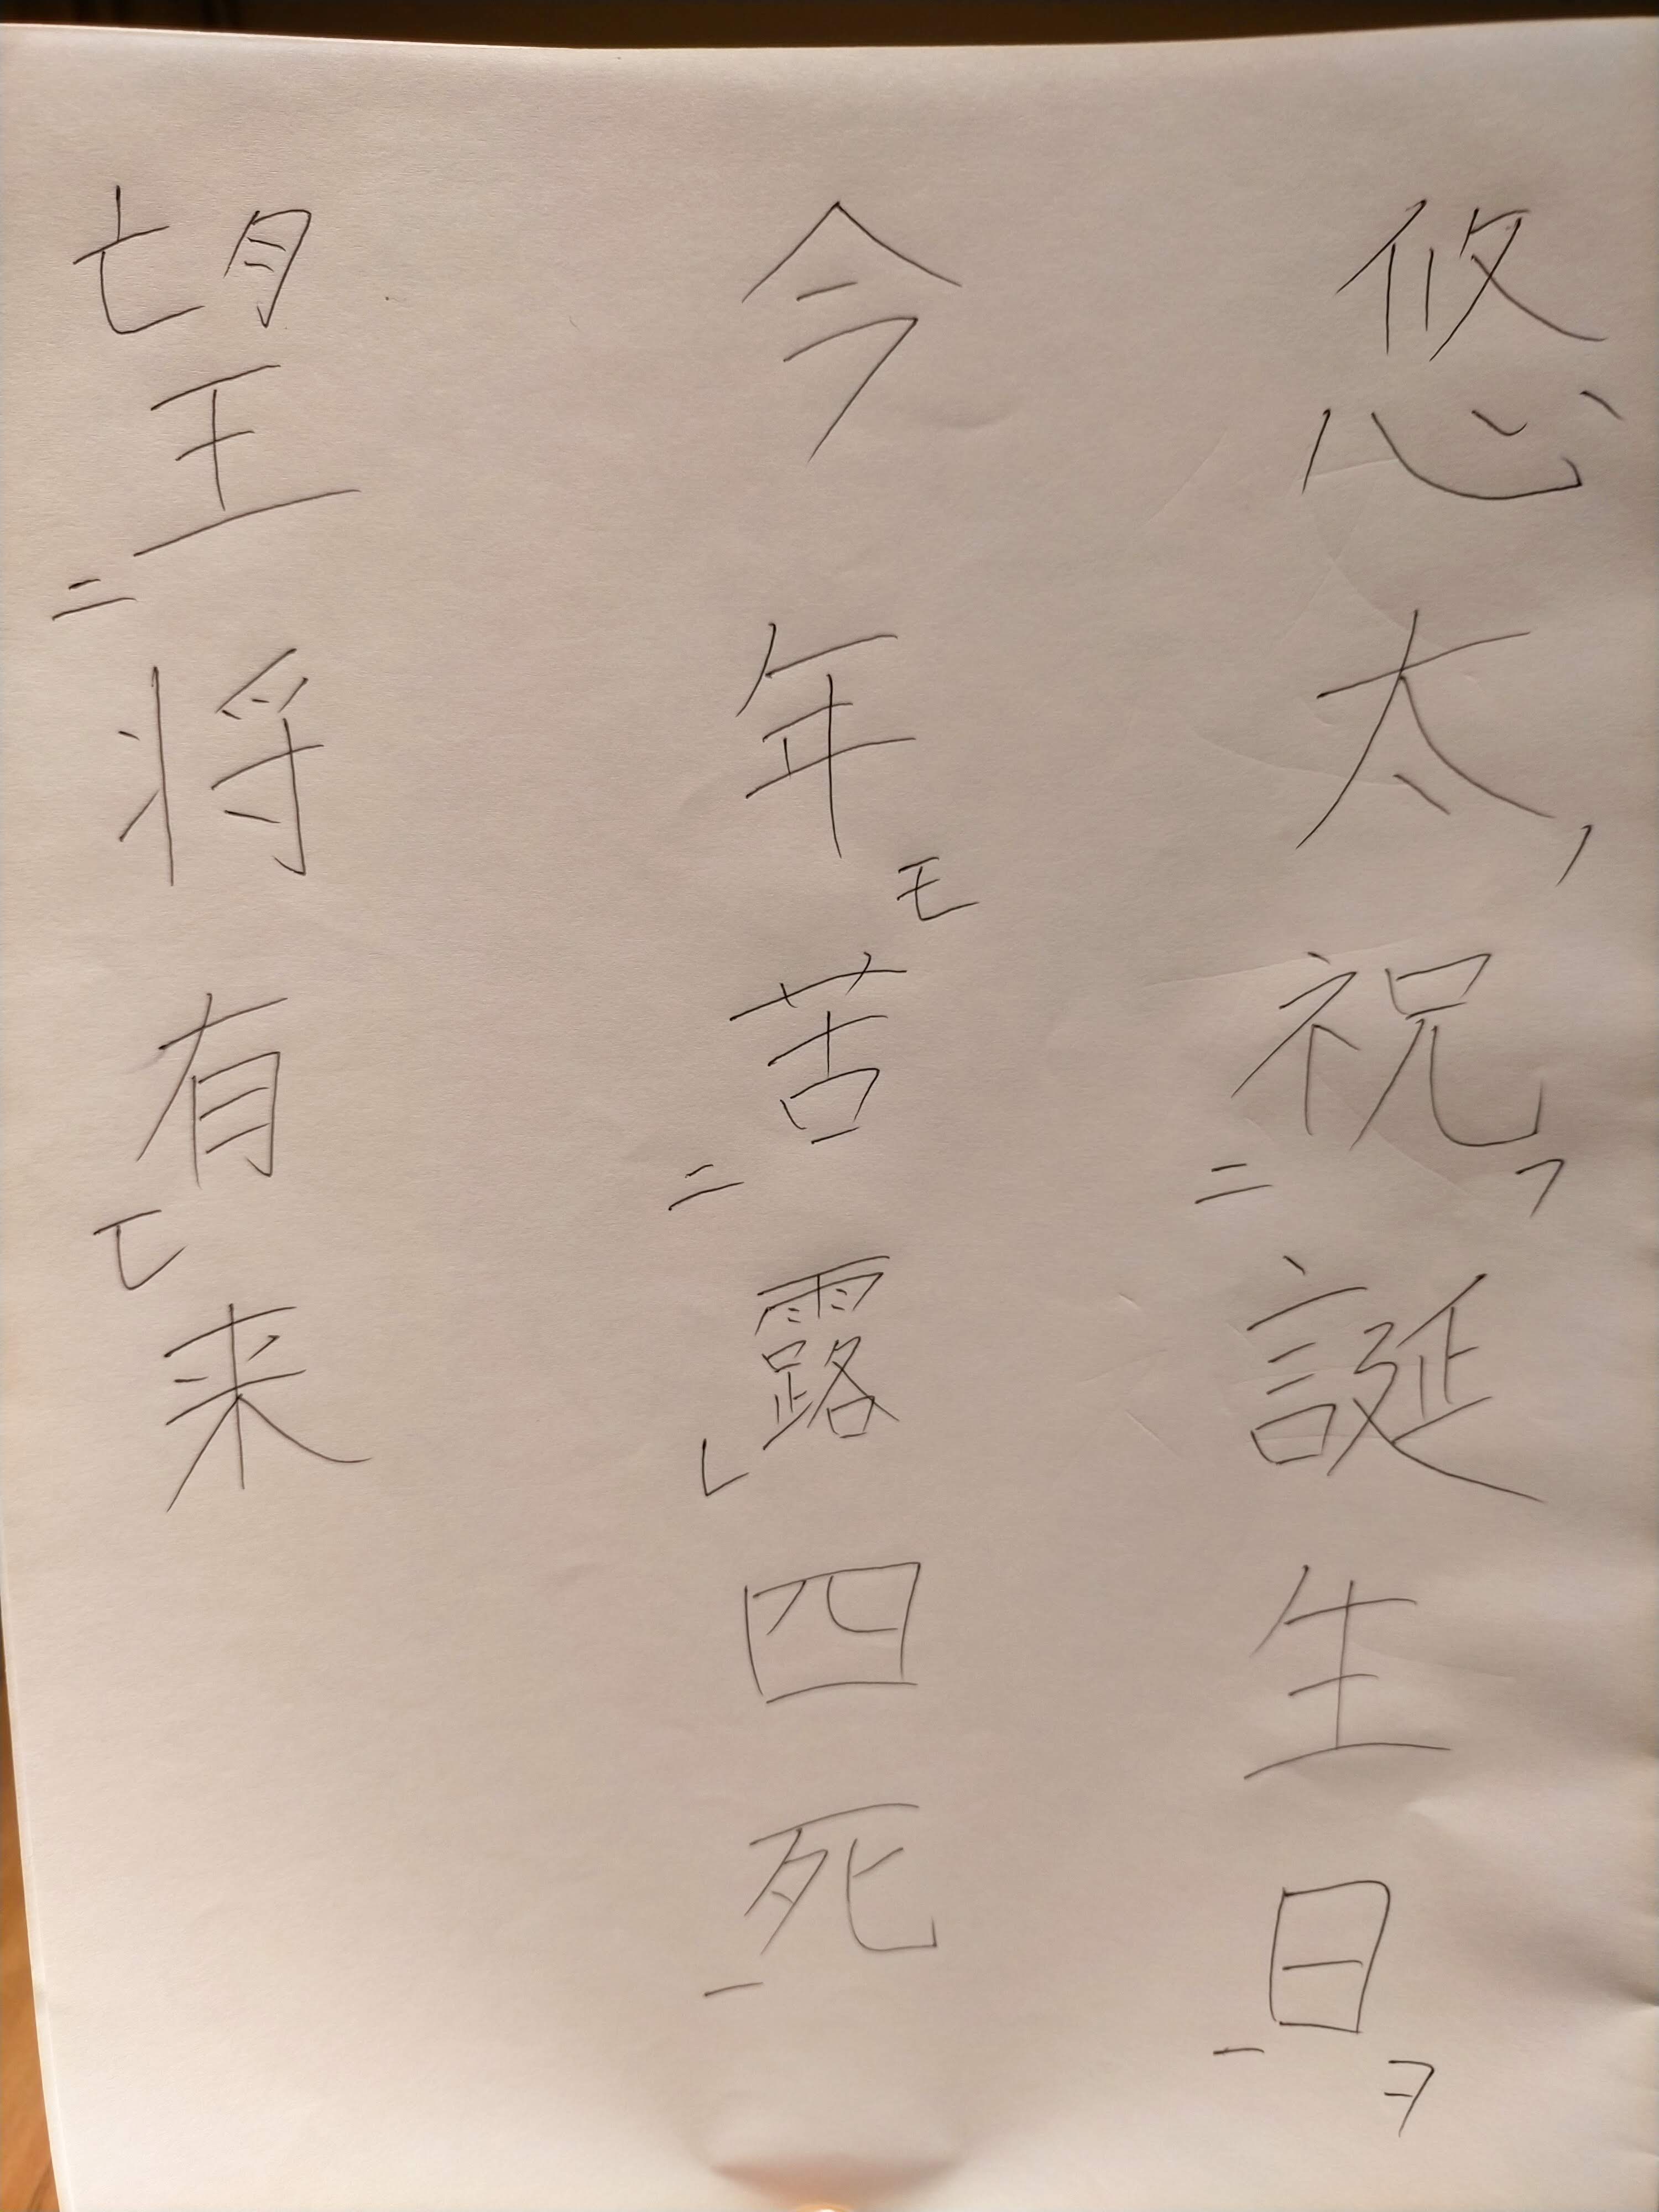 悠太ノ祝フ二誕生日ヲ一
今年モ苦二露レ四死一
望二将有て来